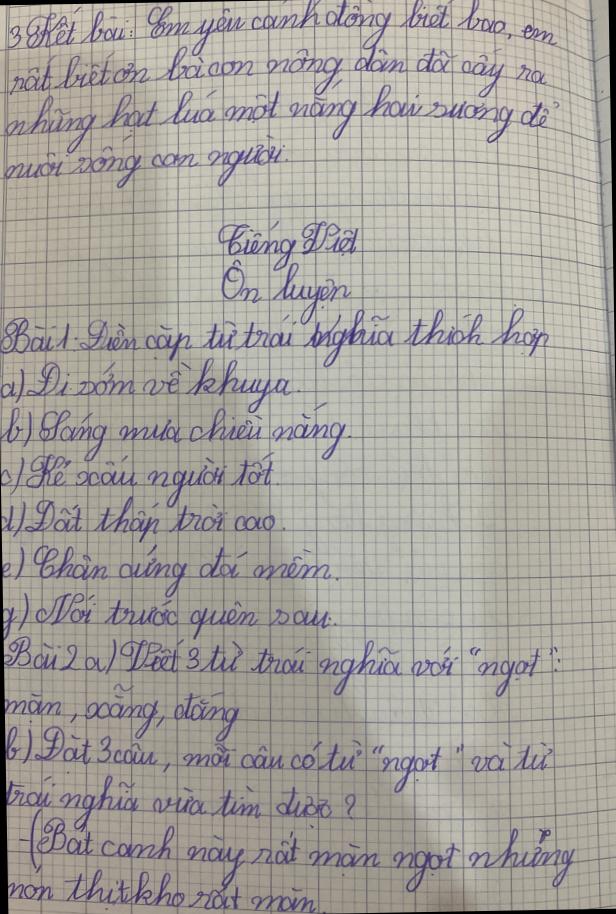 3 Kết bài: Em yêu cánh đồng biết bao, em
rất biết ơn bà con nông dân đã cấy ra
những hạt luá một nắng hai sương để
nuôi sống con người.
Tiếng Việt
Ôn luyện
Bài 1. Điền cặp từ trái nghĩa thích hợp
a) Đi sớm về khuya.
b) Sáng mưa chiều nắng.
c) Kẻ xấu người tốt
d) Đất thấp trời cao.
e) Chân cứng đá mềm.
g) Nói trước quên sau.
Bài 2 a) Viết 3 từ trái nghĩa với "ngọt":
mặn, xẵng, đắng
b) Đặt 3 câu, mỗi câu có từ "ngọt" và từ
trái nghĩa vừa tìm được?
-(Bát canh này rất mặn ngọt nhưng
món thịt kho rất mặn.